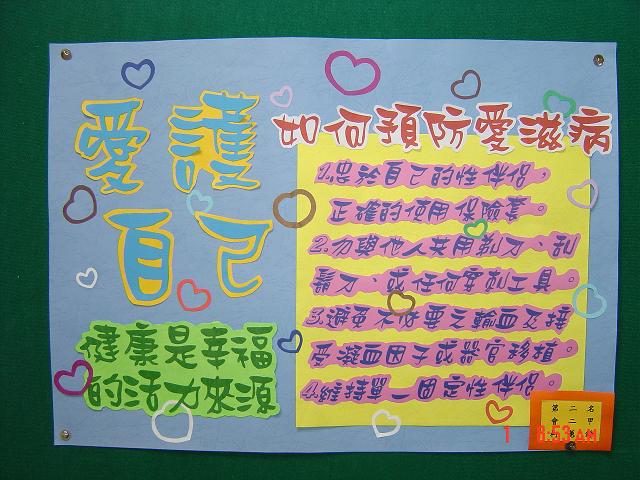 愛護
自己
健康是幸福
的活力來源
如何預防愛滋病
1.忠於自己的性伴侶，
正確的使用保險套。
2.勿與他人共用剃刀、刮
鬍刀、或任何穿刺工具。
3.避免不必要之輸血及接
受凝血因子或器官移植。
4.維持單一固定性伴侶。
第二名
會二甲
1 8:53AM